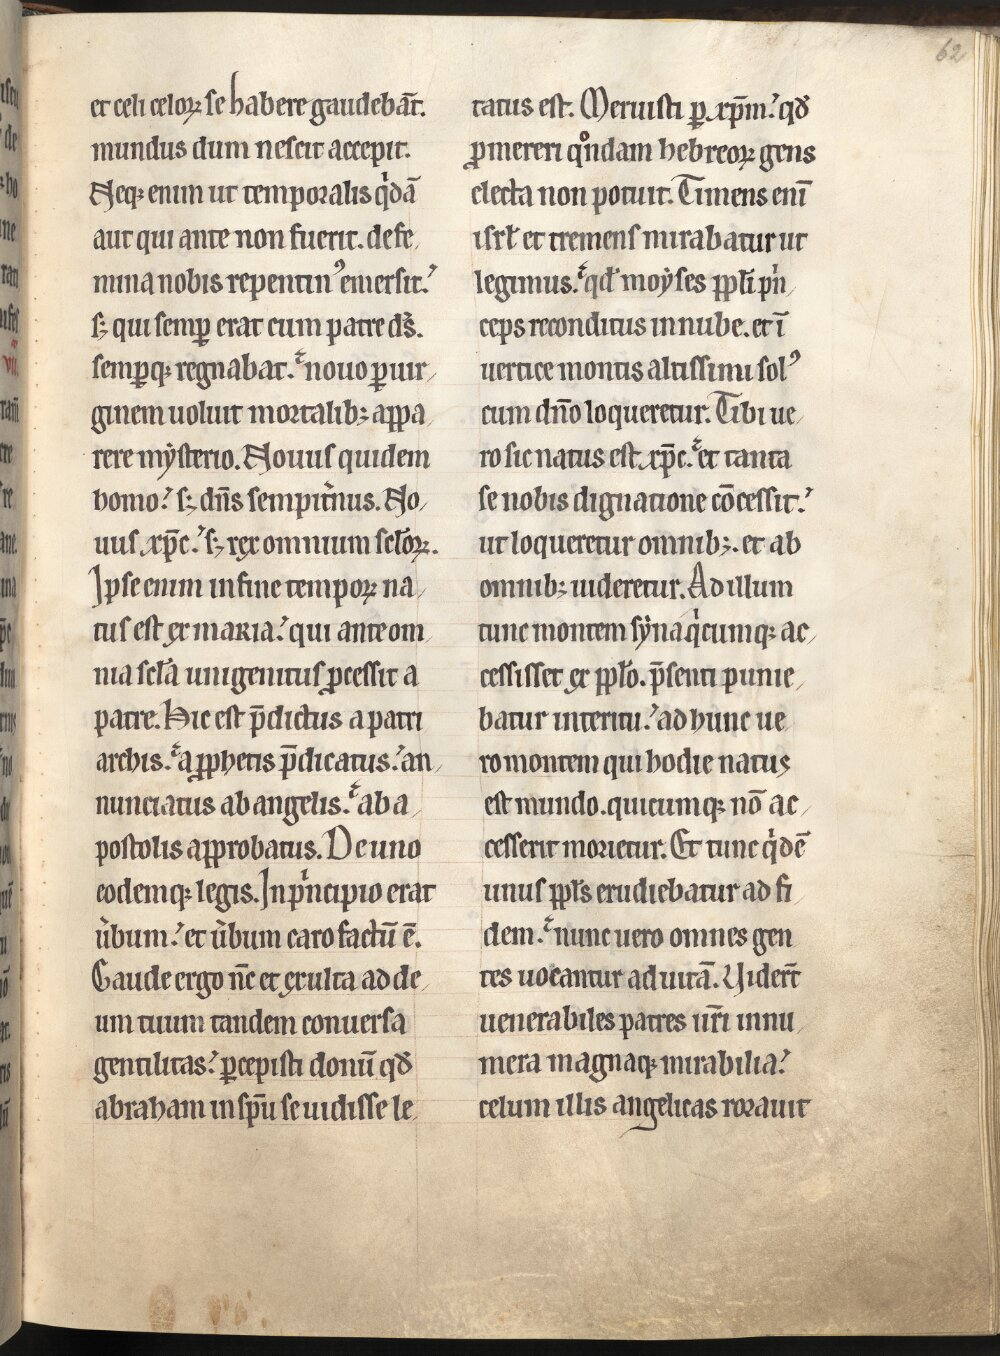 62
et celi celoꝝ se habere gaudebāt.
mundus dum nescit accepit.
Neqꝫ enim ut temporalis qͥdā
aut qui ante non fuerit. de fe
mina nobis repentinꝰ emersit.
sꝫ qui semꝑ erat cum patre ds̄.
semꝑqꝫ regnabat. nouo ꝑ uir
ginem uoluit mortalibꝫ appa
rere mẏsterio. Nouus quidem
homo. sꝫ dn̄s sempit͛nus. No
uus xp̄c. sꝫ rex omnium scl̄oꝝ.
Ipse enim in fine tempoꝝ na
tus est ex maria. qui ante om
nia scl̄a unigenitus ꝓcessit a
patre. Hic est p̄dictus a patri
archis. a ꝓphetis p̄dicatus. an
nunciatus ab angelis. ab a
postolis approbatus. De uno
eodemqꝫ legis. In pͥncipio erat
u͛bum. et u͛bum caro factū ē.
Gaude ergo nc̄ et exulta ad de
um tuum tandem conuersa
gentilitas. ꝑcepisti donū qđ
abraham in sp̄u se uidisse le
tatus est. Meruisti ꝑ xp̄m. qđ
ꝓmereri qͦndam hebreoꝝ gens
electa non potuit. Timens enī
isrł et tremens mirabatur ut
legimus. qđ moẏses ppłi pͥn
ceps reconditus in nube. et ī
uertice montis altissimi solꝰ
cum dn̄o loqueretur. Tibi ue
ro sic natus est xp̄c. et tanta
se nobis dignatione cōcessit.
ut loqueretur omnibꝫ. et ab
omnibꝫ uideretur. Ad illum
tunc montem sẏna qͥcumqꝫ ac
cessisset ex ppło. p̄senti punie
batur interitu. ad hunc ue
ro montem qui hodie natus
est mundo. quicumqꝫ nō ac
cesserit morietur. Et tunc qͥdē
unus ppłs erudiebatur ad fi
dem. nunc uero omnes gen
tes uocantur ad uitā. Uider̄t
uenerabiles patres ur̄i innu
mera magnaqꝫ mirabilia.
celum illis angelicas rorauit